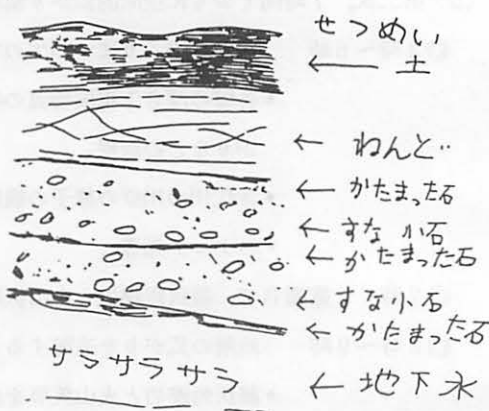 せつめい
← 土
← ねんど
← かたまった石
← すな 小石
← かたまった石
← すな小石
← かたまった石
サラサラ サラ ← 地下水